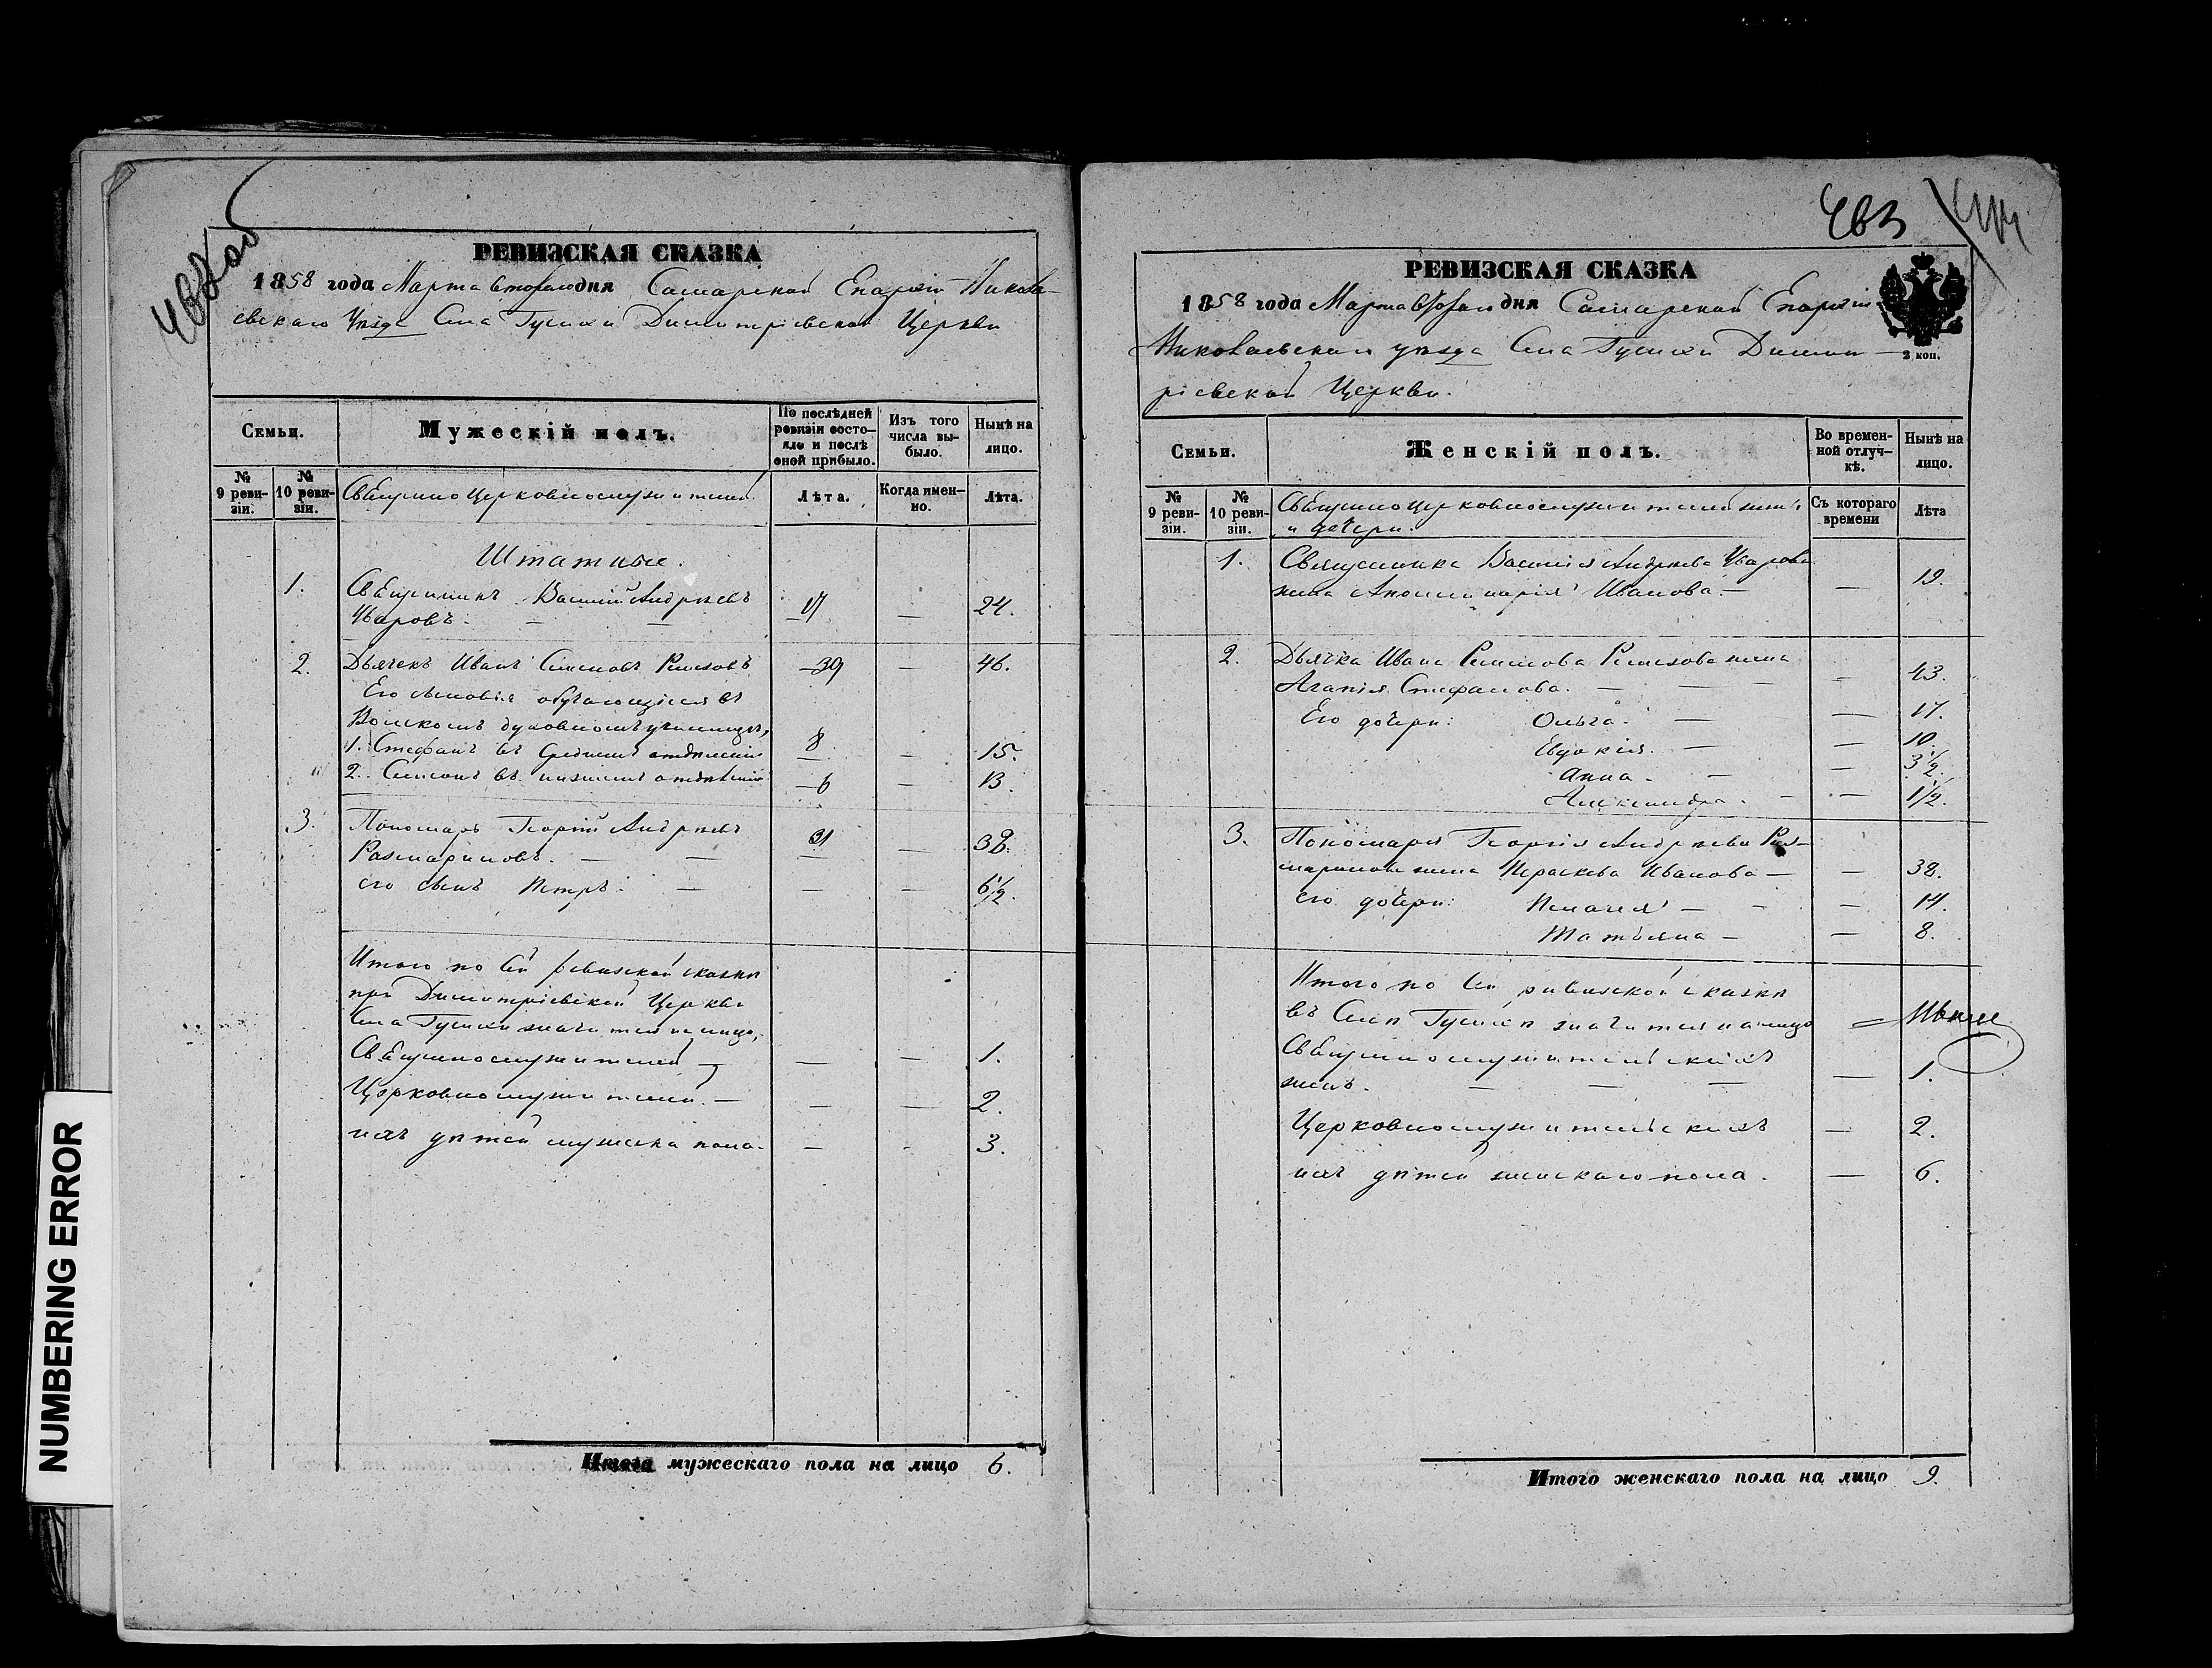 462 об
РЕВИЗСКАЯ СКАЗКА
1858 года Марта второго дня Самарской Епархіи Никола-
евскаго Уѣзда Села Гусихи Димитріевской Церкви
Семьи.
Мужескій полъ.
По послѣдней ревизіи состо-яло и послѣ оной прибыло.
Изъ того числа вы-было.
Нынѣ на лицо.
№ 9 реви-зіи.
№ 10 реви-зіи.
Священно Церковнослужителей
Лѣта.
Когда имен-но.
Лѣта.
Штатные.
1. Священникъ Василій Андреевъ
Уваровъ. — — 17 — 24.
2. Дьячекъ Иванъ Симеоновъ Ремезовъ. 39 — 46.
Его сыновья обучающіеся въ
Вольскомъ духовномъ училищѣ,
1. Стефанъ въ среднемъ отдѣленіи 8 — 15.
2. Симеонъ въ низшемъ отдѣленіи 6 — 13.
3. Пономарь Георгій Андреевъ
Размариновъ. — — 31 — 38.
его сынъ Петръ. — — — 6½.
Итого по сей ревизской сказкѣ
при Димитріевской Церкви
Села Гусихи значится на лицо,
Священнослужителей — — — 1.
Церковнослужителей. — — — 2.
ихъ дѣтей мужеска пола. — - 3.
Итого мужескаго пола на лицо 6.
463
РЕВИЗСКАЯ СКАЗКА
1858 года Марта второго дня Самарской Епархіи
2 коп.
Николаевскаго уѣзда Села Гусихи Димит-
ріевской Церкви.
Семьи.
Женскій полъ.
Во времен-ной отлуч-кѣ.
Нынѣ на лицо.
№ 9 реви-зіи.
№ 10 реви-зіи.
Священно церковнослужителей жены
и дочери.
Съ котораго времени
Лѣта
1. Священника Василія Андреева Уварова
жена Аполлинарія Иванова. — — 19.
2. Дьячка Ивана Симеонова Ремезова жена
Агапія Стефанова. — — — 43.
Его дочери: Ольга. — — 17.
Евдокія. — — 10.
Анна. — — 3½.
Александра. - — 1½.
3. Пономаря Георгія Андреева Раз-
маринова жена Параскева Иванова — — 38.
Его дочери: Пелагея — - — 14.
Татьяна — — 8.
Итого по сей ревизской сказкѣ
въ Селѣ Гусихѣ значится на лицо
Священнослужительскихъ
женъ. — — — — 1.
Церковнослужительскихъ — 2.
ихъ дѣтей женскаго пола. — 6.
Итого женскаго пола на лицо 9.
NUMBERING ERROR